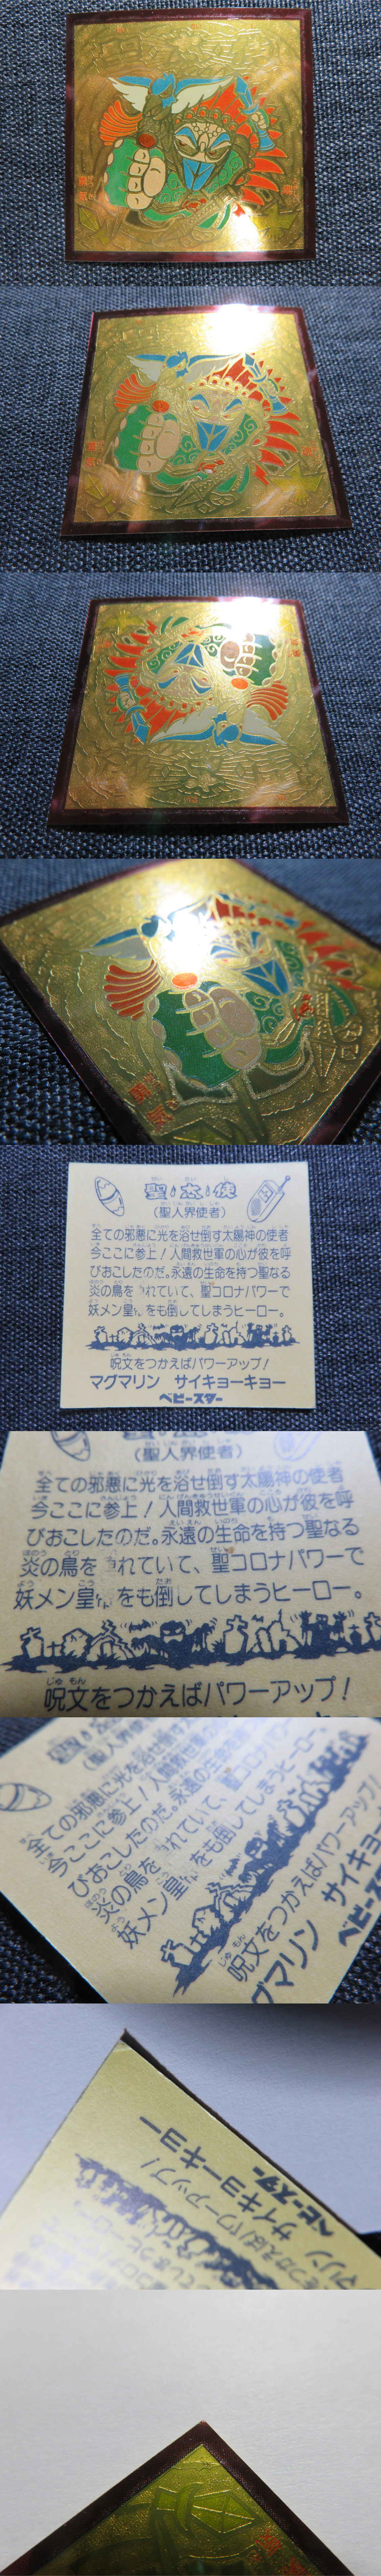 聖・太・使
(聖人界使者)
全ての邪悪に光を浴せ倒す太陽神の使者
今ここに参上！人間救世軍の心が彼を呼
びおこしたのだ。永遠の生命を持つ聖なる
炎の鳥を れていて、聖コロナパワーで
妖メン皇 をも倒してしまうヒーロー。
呪文をつかえばパワーアップ！
マグマリン サイキョーキョー
ベビースター
(聖人界使者)
全ての邪悪に光を浴せ倒す太陽神の使者
今ここに参上！人間救世軍の心が彼を呼
びおこしたのだ。永遠の生命を持つ聖なる
炎の鳥を れていて、聖コロナパワーで
妖メン皇 をも倒してしまうヒーロー。
呪文をつかえばパワーアップ！
全ての邪悪に光を浴せ倒す太
今ここに参上！人間救世軍の
びおこしたのだ。永遠の生命を持
炎の鳥を れていて、聖コロナパ
妖メン皇 をも倒してしまうヒーロー
呪文をつかえばパワーアップ
グマリン サイキョ
ベビースタ
つかえばパワーアップ！
マリン サイキョーキョー
ベビースター